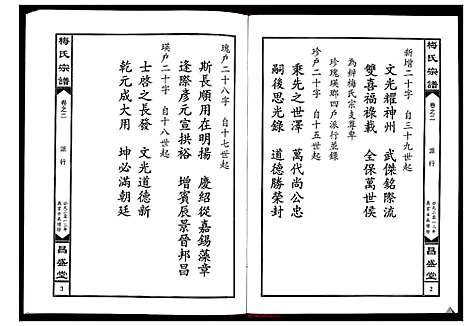 梅氏宗譜
卷之二
派行
昌盛堂
2
新增二十字 自三十九世起
文光耀神州 武傑銘際流
雙喜福祿載 全保萬世侯
為辨梅氏宗支尊卑
珍瑰瑛瑯四戶派行並錄
珍戶二十字 自十五世起
秉先之世澤 萬代尚公忠
嗣後思光錄 道德勝榮封
瑰戶二十八字 自十七世起
斯長順用在明揚 慶紹從嘉錫藻章
逢際彥元宣拱裕 增賓辰景晉邦昌
瑛戶二十字 自十八世起
士啓之長發 文光道德新
乾元成大用 坤必滿朝廷
梅氏宗譜
卷之二
派行
昌盛堂
3